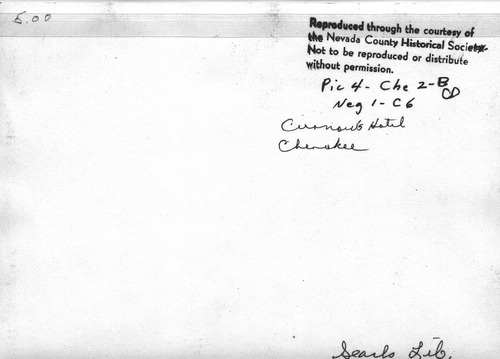 5.00
Reproduced through the courtesy of
the Nevada County Historical Society.
Not to be reproduced or distribute
without permission.
Pic 4 - Che 2-B
CD
Neg 1 - C6
Hotel
Cherokee
Searls Lib.